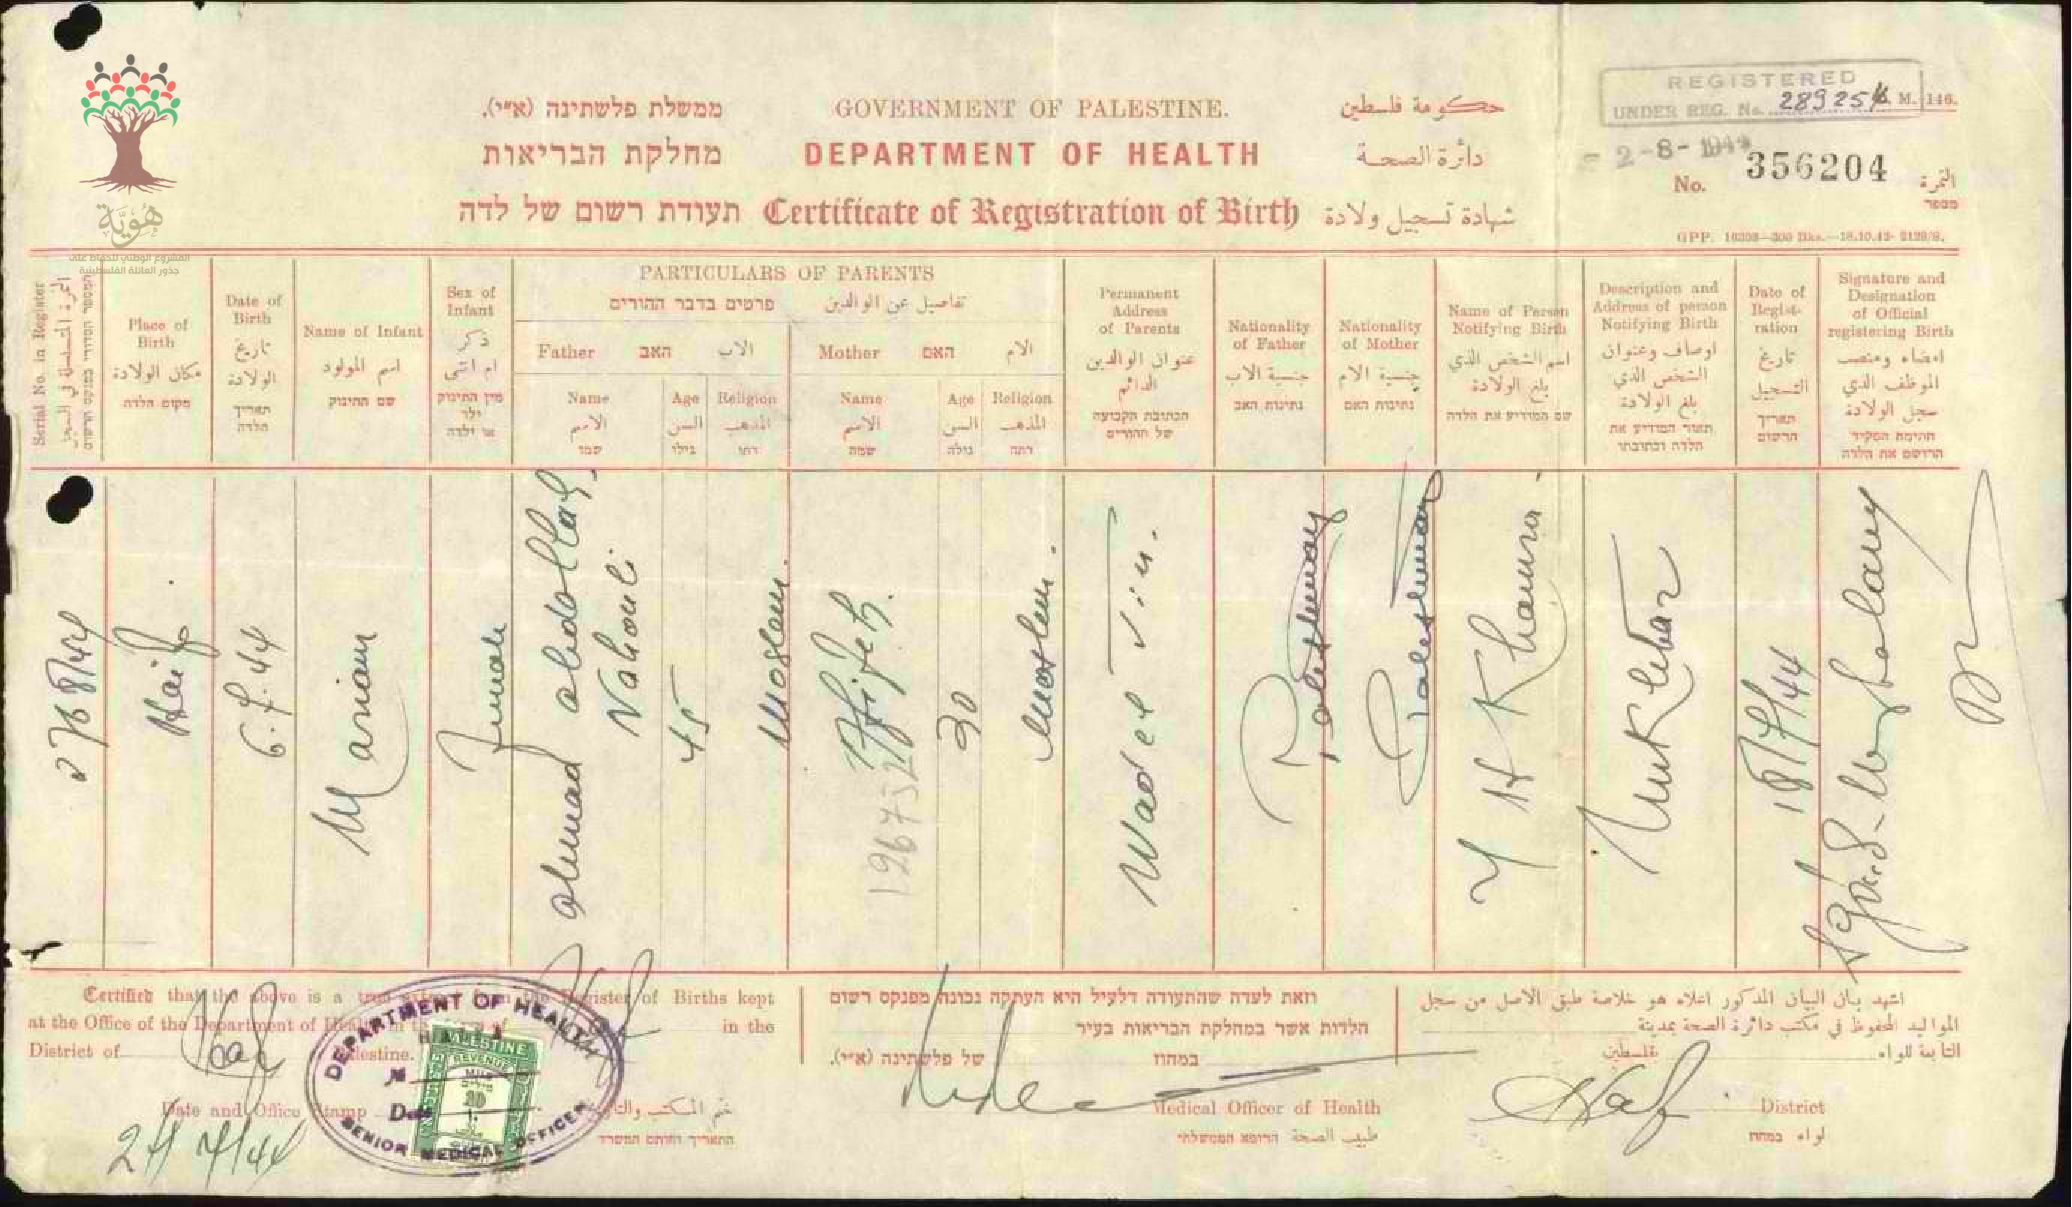 هُوِيَّة
المشروع الوطني للحفاظ على
جذور العائلة الفلسطينية
ממשלת פלשתינה (א״י). GOVERNMENT OF PALESTINE. حكومة فلسطين
מחלקת הבריאות DEPARTMENT OF HEALTH دائرة الصحة
תעודת רשום של לדה Certificate of Registration of Birth شهادة تسجيل ولادة
REGISTERED
UNDER REG. No. 289254 M. 146.
2-8-1944
No. 356204 النمرة
מספר
GPP. 16308—300 Bks.—18.10.43- 2129/S.
Serial No. in Register
النمرة المتسلسلة في السجل
המספר הסדורי בפנקס הרשום
Place of Birth
مكان الولادة
מקום הלדה
Date of Birth
تاريخ الولادة
תאריך הלדה
Name of Infant
اسم المولود
שם התינוק
Sex of Infant
ذكر ام انثى
מין התינוק
ילד או ילדה
PARTICULARS OF PARENTS
פרטים בדבר ההורים تفاصيل عن الوالدين
Father האב الاب
Mother האם الام
Name الاسم שמו
Age السن גילו
Religion المذهب דתו
Name الاسم שמה
Age السن גילה
Religion المذهب דתה
Permanent Address of Parents
عنوان الوالدين الدائم
הכתובת הקבועה של ההורים
Nationality of Father
جنسية الاب
נתינות האב
Nationality of Mother
جنسية الام
נתינות האם
Name of Person Notifying Birth
اسم الشخص الذي بلغ الولادة
שם המודיע את הלדה
Description and Address of person Notifying Birth
اوصاف وعنوان الشخص الذي بلغ الولادة
תאור המודיע את הלדה וכתובתו
Date of Regist-ration
تاريخ التسجيل
תאריך הרשום
Signature and Designation of Official registering Birth
امضاء ومنصب الموظف الذي سجل الولادة
חתימת הפקיד הרושם את הלדה
2768/44
Haifa
6.7.44
Mariam
Female
Ahmad Abdallah
Nahouli
45
Moslem
Afifeh
196752
30
Moslem
Wadet Tin.
Palestinian
Palestinian
Y H Khamra
Mukhtar
18/7/44
Certified that the above is a true extract from the Register of Births kept
at the Office of the Department of Health in the in the
District of Haifa Palestine.
Date and Office Stamp
24/7/44
DEPARTMENT OF HEALTH
HAIFA
No
Date
SENIOR MEDICAL OFFICER
PALESTINE
REVENUE
MILS
20
وختم المكتب والتاريخ
התאריך וחותם המשרד
וזאת לעדה שהתעודה דלעיל היא העתקה נכונה מפנקס רשום
הלדות אשר במחלקת הבריאות בעיר
במחוז של פלשתינה (א״י).
Medical Officer of Health
طبيب الصحة הרופא הממשלתי
اشهد بان البيان المذكور اعلاه هو خلاصة طبق الاصل من سجل
المواليد المحفوظ في مكتب دائرة الصحة بمدينة
التابعة للواء بفلسطين
Haifa District
لواء במחוז